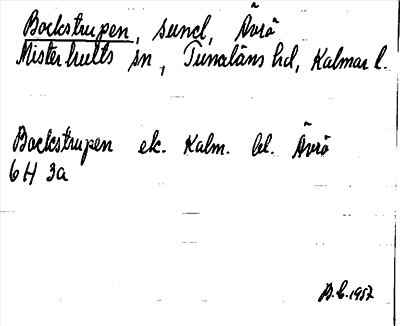 Bockstrupen, sund, Ävrö
Misterhults sn, Tunaläns hd, Kalmar l.
Bockstrupen ek. Kalm. bl. Ävrö
6H 3a
B.E. 1957